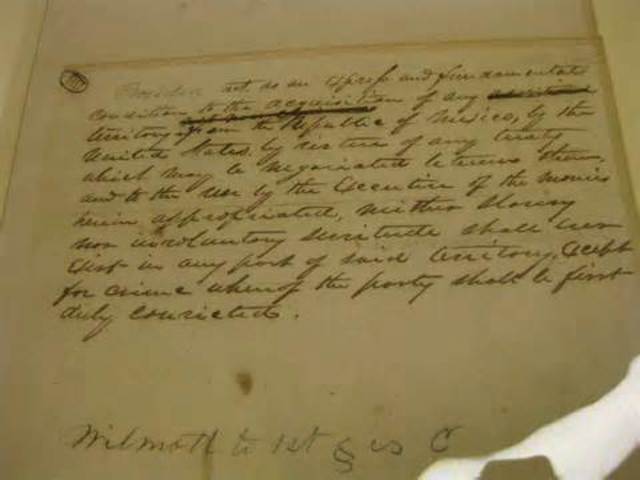 Provided, that, as an express and fundamental
condition to the acquisition of any
territory from the Republic of Mexico, by the
United States, by virtue of any treaty
which may be negotiated between them,
and to the use by the Executive of the monies
herein appropriated, neither slavery
nor involuntary servitude shall ever
exist in any part of said territory, except
for crime whereof the party shall be first
duly convicted.
Wilmot to 1st § is C